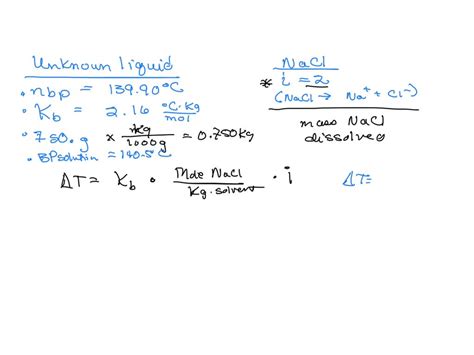 Unknown liquid
• nbp = 139.90 °C
• Kb = 2.16 °C·Kg/mol
• 750. g × 1Kg/1000g = 0.750 Kg
• BPsolution = 140.5 °C
NaCl
* i = 2
(NaCl → Na+ + Cl-)
mass NaCl
dissolved
ΔT = Kb • mole NaCl/Kg solvent • i
ΔT=